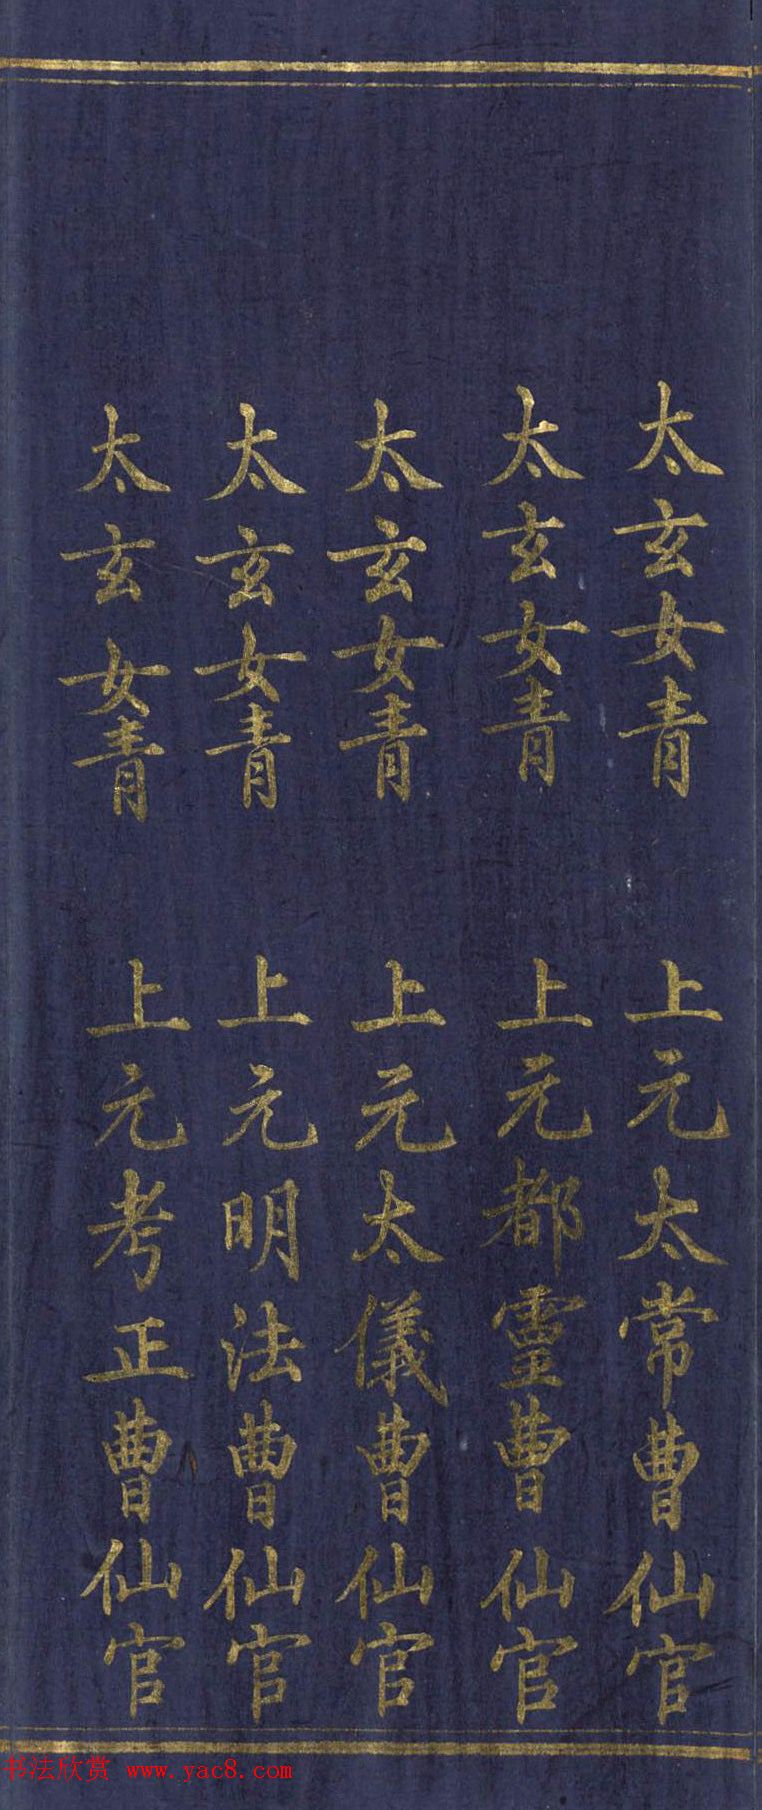 太玄女青 上元太常曹仙官
太玄女青 上元都靈曹仙官
太玄女青 上元太儀曹仙官
太玄女青 上元明法曹仙官
太玄女青 上元考正曹仙官
书法欣赏 www.yac8.com